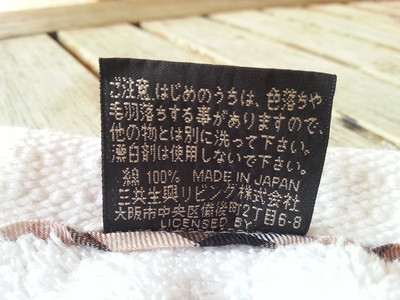 ご注意 はじめのうちは、色落ちや
毛羽落ちする事がありますので、
他の物とは別に洗って下さい。
漂白剤は使用しないで下さい。
綿 100% MADE IN JAPAN
三共生興リビング株式会社
大阪市中央区備後町2丁目6-8
LICENSED BY